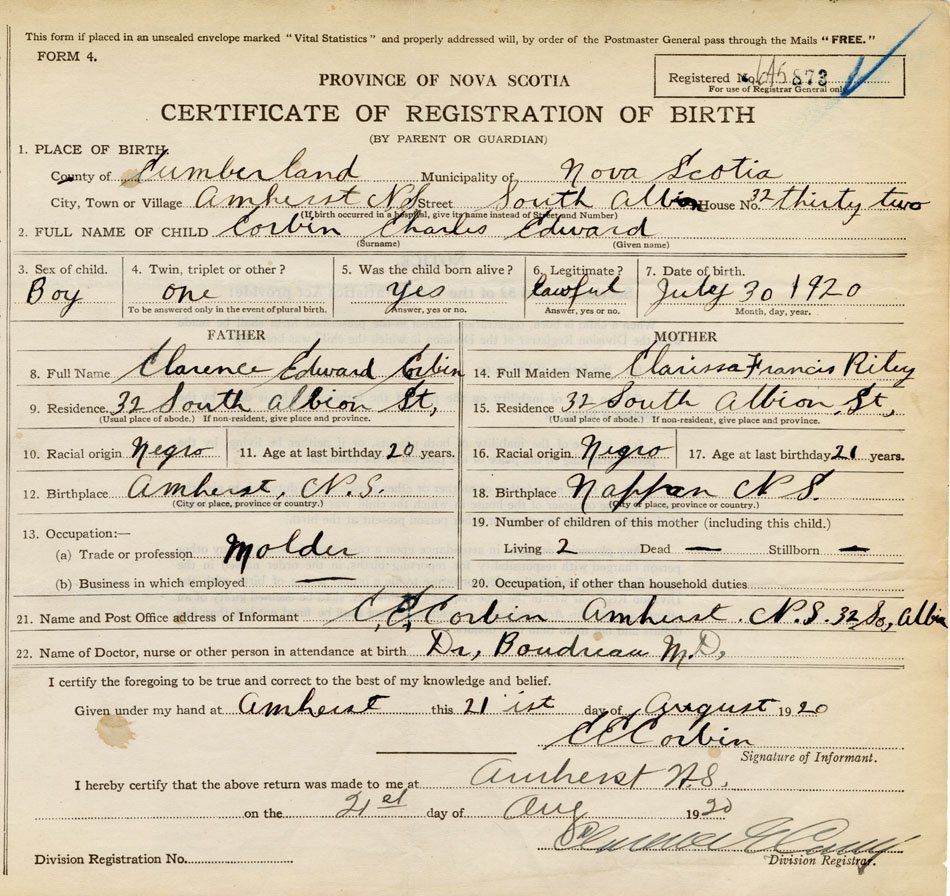 This form if placed in an unsealed envelope marked "Vital Statistics" and properly addressed will, by order of the Postmaster General pass through the Mails "FREE."
FORM 4.
Registered No. 873
For use of Registrar General only.
PROVINCE OF NOVA SCOTIA
CERTIFICATE OF REGISTRATION OF BIRTH
(BY PARENT OR GUARDIAN)
1. PLACE OF BIRTH.
County of Cumberland Municipality of Nova Scotia
City, Town or Village Amherst N.S Street South Albion House No. 32 thirty two
(If birth occurred in a hospital, give its name instead of Street and Number)
2. FULL NAME OF CHILD Corbin Charles Edward
(Surname) (Given name)
3. Sex of child. 4. Twin, triplet or other? 5. Was the child born alive? 6. Legitimate? 7. Date of birth.
Boy one yes lawful July 30 1920
To be answered only in the event of plural birth. Answer, yes or no. Answer, yes or no. Month, day, year.
FATHER MOTHER
8. Full Name Clarence Edward Corbin 14. Full Maiden Name Clarissa Francis Riley
9. Residence. 32 South Albion St, 15. Residence 32 South Albion St,
(Usual place of abode.) If non-resident, give place and province. (Usual place of abode.) If non-resident, give place and province.
10. Racial origin Negro 11. Age at last birthday 20 years. 16. Racial origin Negro 17. Age at last birthday 21 years.
12. Birthplace Amherst, N.S. 18. Birthplace Nappan N S.
(City or place, province or country.) (City or place, province or country.)
13. Occupation:— 19. Number of children of this mother (including this child.)
(a) Trade or profession. Molder Living 2 Dead — Stillborn —
(b) Business in which employed — 20. Occupation, if other than household duties
21. Name and Post Office address of Informant C, E, Corbin Amherst. N.S. 32 So, Albin
22. Name of Doctor, nurse or other person in attendance at birth Dr, Boudreau M.D,
I certify the foregoing to be true and correct to the best of my knowledge and belief.
Given under my hand at Amherst this 21 ist day of August 1920
C E Corbin
Signature of Informant.
I hereby certify that the above return was made to me at Amherst N.S.
on the 21st day of Aug 1920
Division Registration No. Division Registrar.